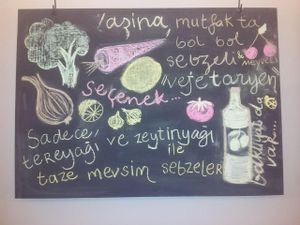 Yaşina, mutfakta
bol bol
sebzeli
meyveli
vejetaryen
Seçenek...
Sadece,
tereyağı ve zeytinyağı
ile
taze mevsim sebzeler
var...